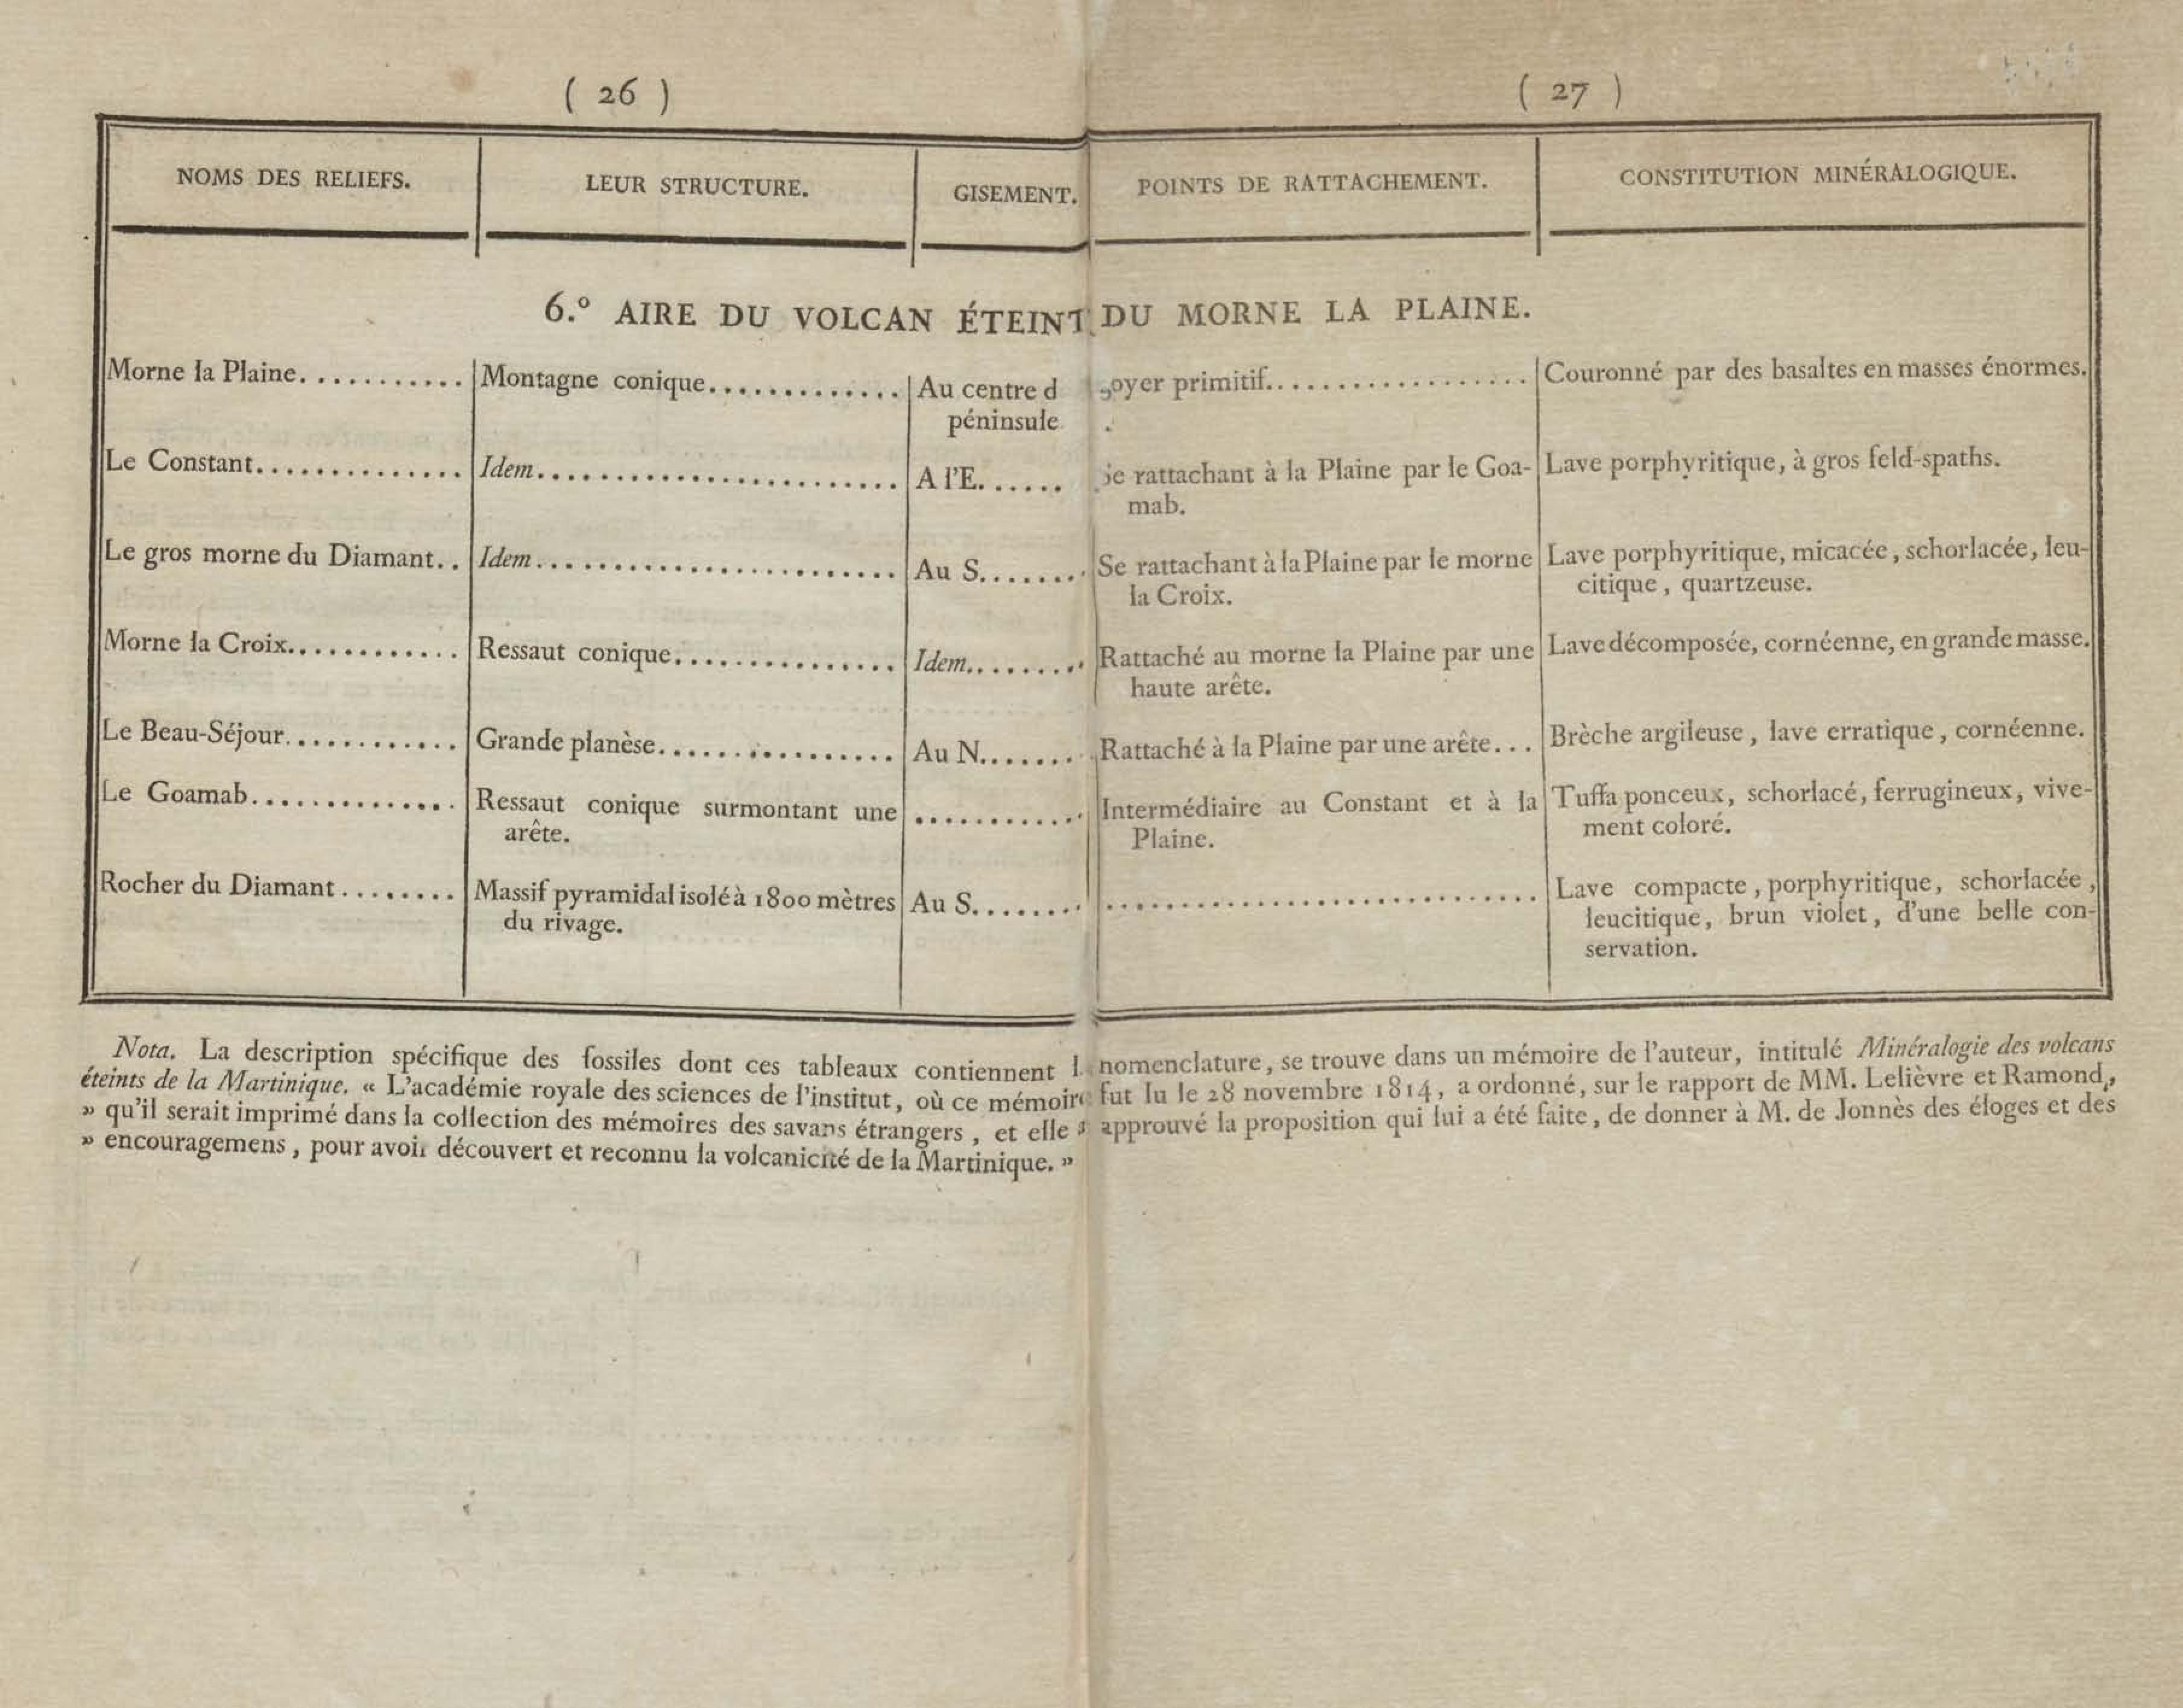 ( 26 )
( 27 )
NOMS DES RELIEFS.
LEUR STRUCTURE.
GISEMENT.
POINTS DE RATTACHEMENT.
CONSTITUTION MINÉRALOGIQUE.
6.° AIRE DU VOLCAN ÉTEINT DU MORNE LA PLAINE.
Morne la Plaine............
Montagne conique.............
Au centre d
péninsule
oyer primitif..................
Couronné par des basaltes en masses énormes.
Le Constant..............
Idem........................
A l'E......
Se rattachant à la Plaine par le Goa-
mab.
Lave porphyritique, à gros feld-spaths.
Le gros morne du Diamant..
Idem........................
Au S.......
Se rattachant à la Plaine par le morne
la Croix.
Lave porphyritique, micacée, schorlacée, leu-
citique, quartzeuse.
Morne la Croix............
Ressaut conique...............
Idem........
Rattaché au morne la Plaine par une
haute arête.
Lave décomposée, cornéenne, en grande masse.
Le Beau-Séjour............
Grande planèse................
Au N.......
Rattaché à la Plaine par une arête...
Brèche argileuse, lave erratique, cornéenne.
Le Goamab..............
Ressaut conique surmontant une
arête.
...........
Intermédiaire au Constant et à la
Plaine.
Tuffa ponceux, schorlacé, ferrugineux, vive-
ment coloré.
Rocher du Diamant........
Massif pyramidal isolé à 1800 mètres
du rivage.
Au S........
.............................
Lave compacte, porphyritique, schorlacée,
leucitique, brun violet, d'une belle con-
servation.
Nota. La description spécifique des fossiles dont ces tableaux contiennent l nomenclature, se trouve dans un mémoire de l'auteur, intitulé Minéralogie des volcans
éteints de la Martinique. « L'académie royale des sciences de l'institut, où ce mémoire fut lu le 28 novembre 1814, a ordonné, sur le rapport de MM. Lelièvre et Ramond,
» qu'il serait imprimé dans la collection des mémoires des savans étrangers, et elle a approuvé la proposition qui lui a été faite, de donner à M. de Jonnès des éloges et des
» encouragemens, pour avoir découvert et reconnu la volcanicité de la Martinique. »